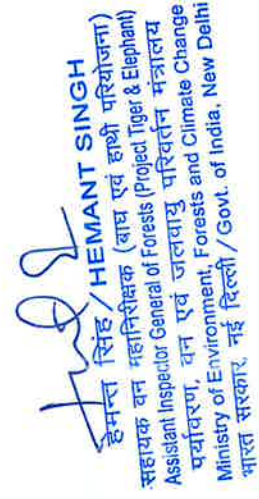 हेमन्त सिंह / HEMANT SINGH
सहायक वन महानिरीक्षक (बाघ एवं हाथी परियोजना)
Assistant Inspector General of Forests (Project Tiger & Elephant)
पर्यावरण, वन एवं जलवायु परिवर्तन मंत्रालय
Ministry of Environment, Forests and Climate Change
भारत सरकार, नई दिल्ली / Govt. of India, New Delhi